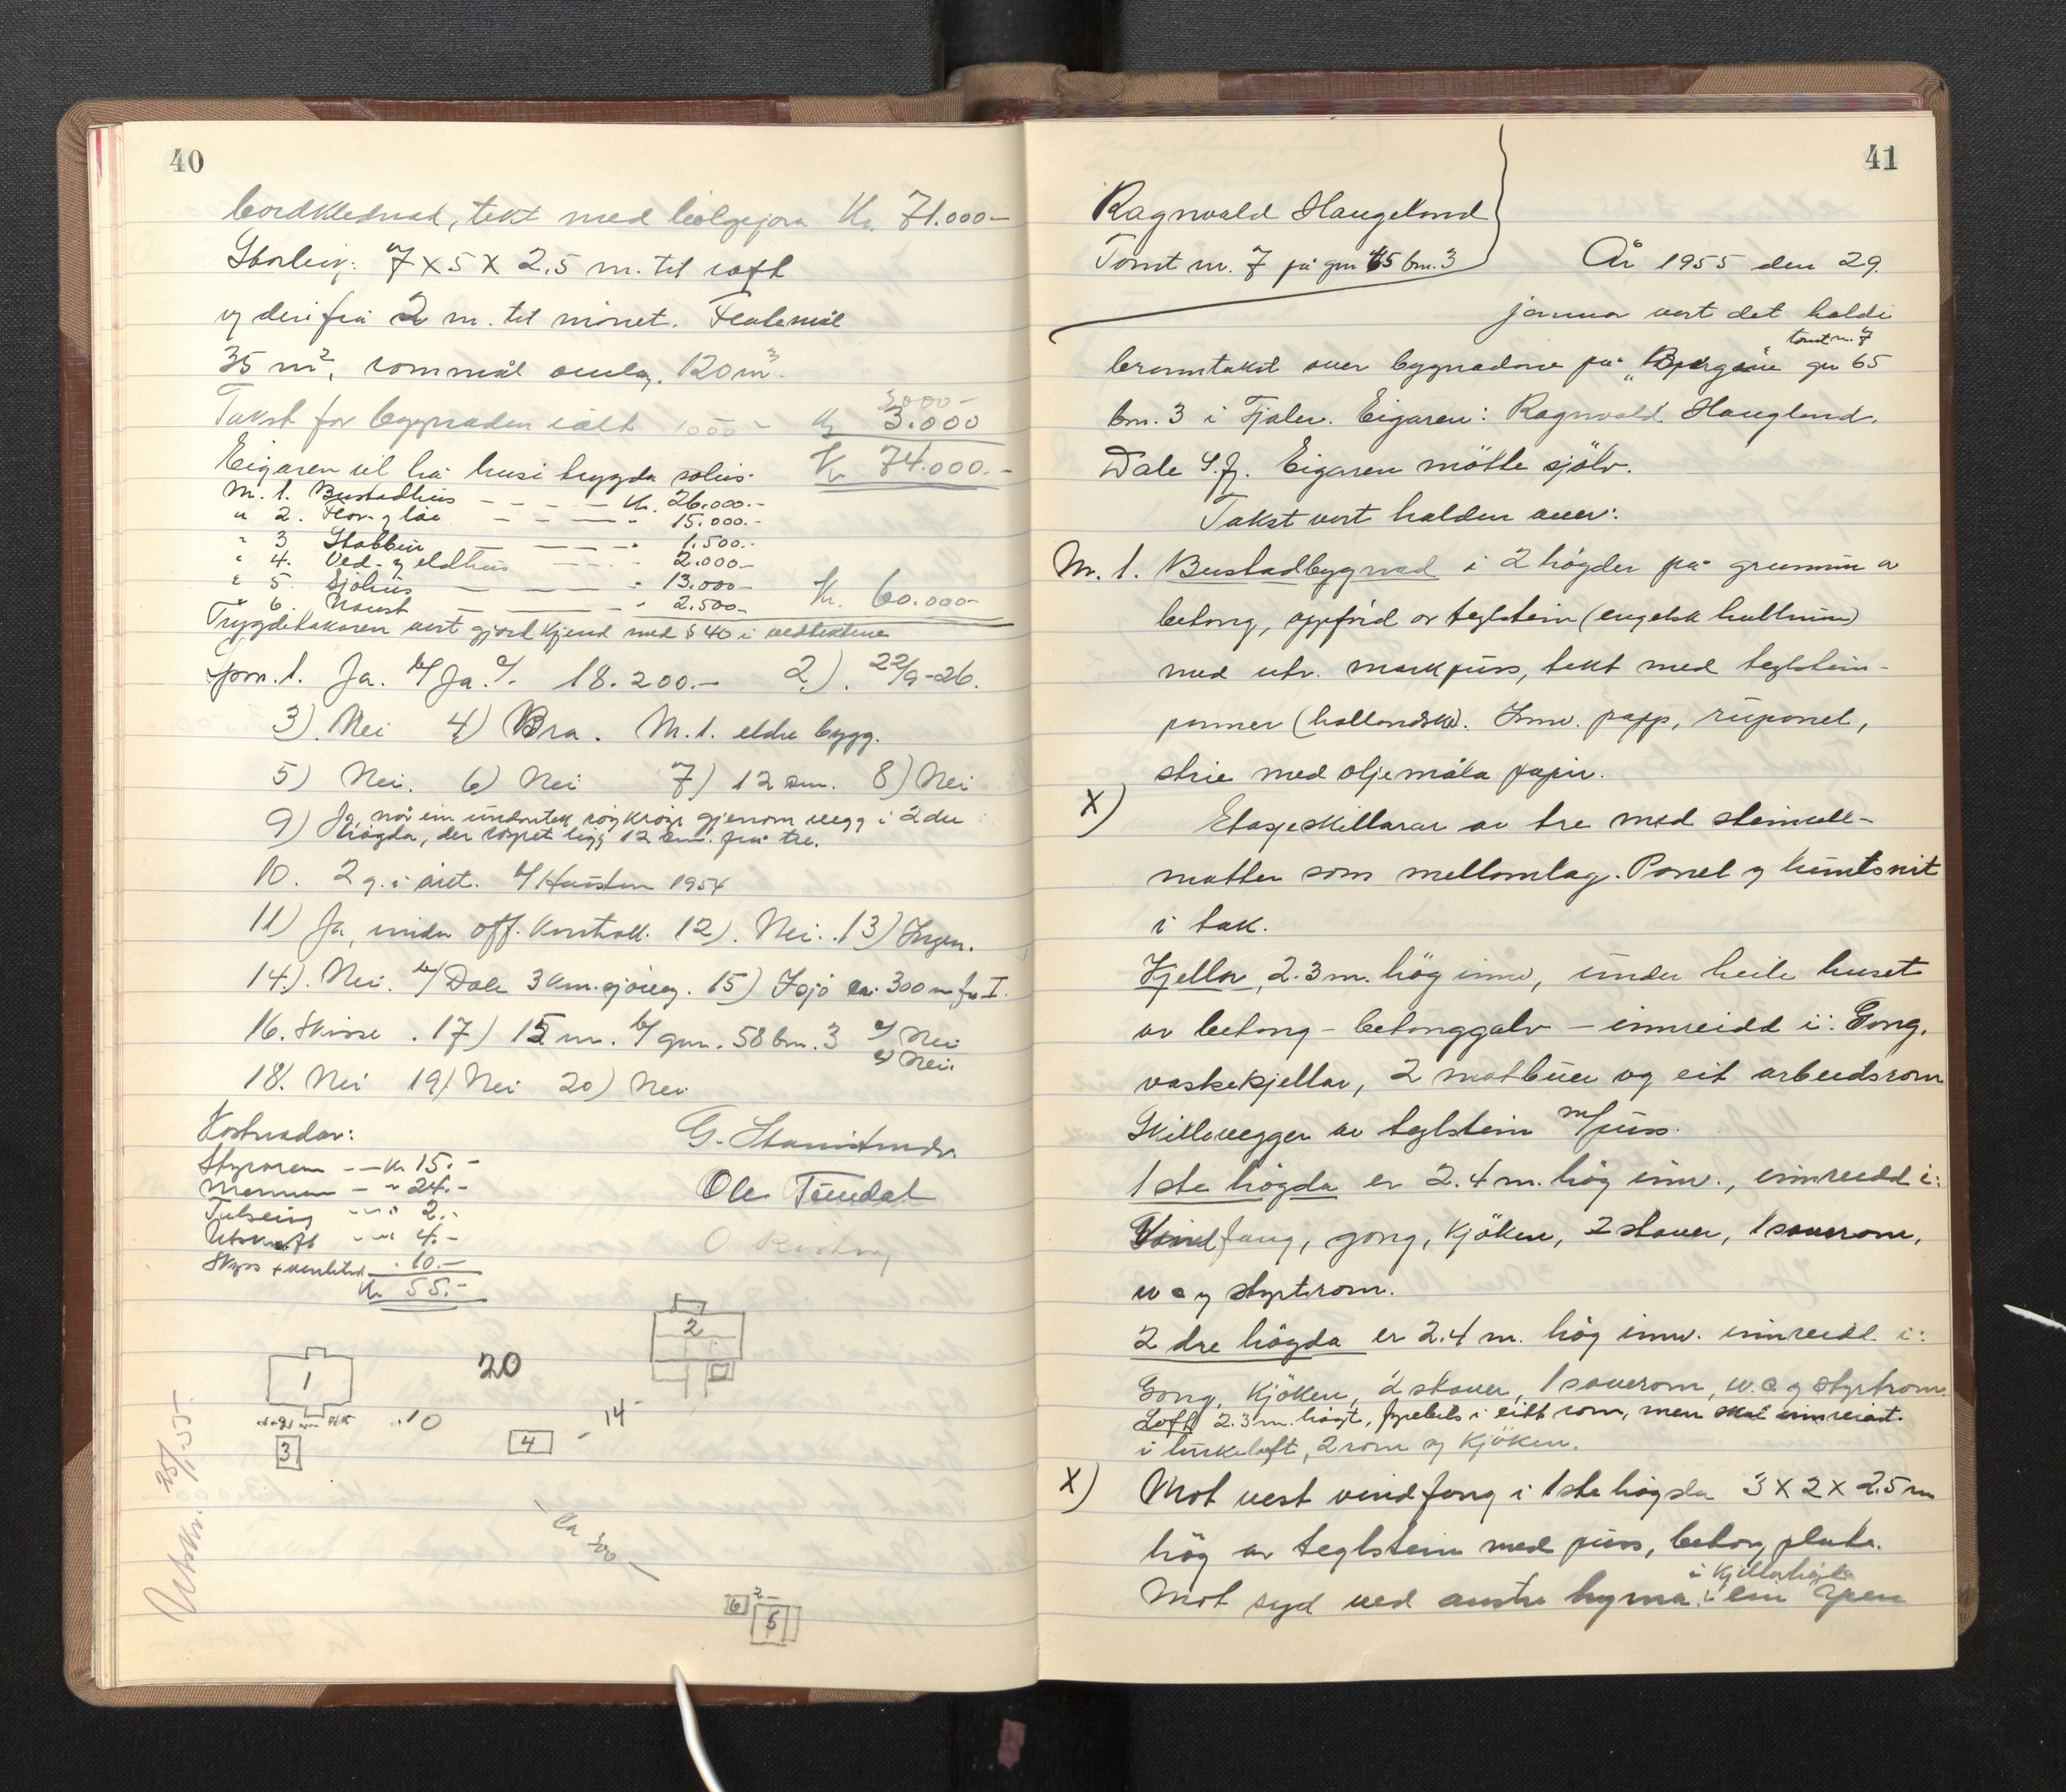 40
bordkledning, tekt med bølgejarn Kr. 71.000-
Storleik: 7 x 5 x 2.5 m. til raft
og derifrå 2 m. til mønet. Flatemål
35 m², rommål omlag. 120 m³.
3000-
Takst for bygnaden ialt 1000- Kr 3.000
Kr 74.000.-
Eigaren vil ha husi trygda solis:
Nr. 1. Bustadhus - - - - Kr. 26.000.-
" 2. Flor og løe - - - " 15.000.-
" 3 Stabben - - - " 1.500.-
" 4. Ved- og eldhus - - - 2.000-
" 5 Sjöhus - - - " 13.000-
" 6. Naust - - - " 2.500- Kr. 60.000-
Trygdetakaren vert gjort kjend med § 40 i vedtektene
Spm. 1. Ja. b/ Ja. c/. 18.200.- 2). 22/9-26.
3). Nei 4) Bra. Nr. 1. eldre bygg.
5) Nei. 6) Nei 7) 12 cm. 8) Nei
9) Ja, når ein undantek röykrör gjenom vegg i 2dre
høgda, der röyret ligg 12 cm. frå tre.
10. 2 g. i året. b/ Hausten 1954
11) Ja, under off. kontroll. 12). Nei. 13) Ingen.
14). Nei. b/ Dale 3 km. sjöveg. 15) I sjö ca. 300 m fr I.
16. Skisse. 17) 15 m. b/ gnr. 58 bnr. 3 c/ Nei
d/ Nei.
18. Nei 19) Nei 20) Nei
Kostnader:
Styraren - - Kr 15.-
Mennene - " 24.-
2.-
Utskrift - " 4.-
10.-
Kr 55.-
Ole Tundal
1
2
20
10
14
3
4
ca 300
6
2
5
Utskr. 25/1.55.
41
Ragnvald Haugeland
Tomt nr. 7 på gnr 65 bnr. 3
År 1955 den 29.
januar vart det halde
tomt nr. 7
branntakst over bygnadene på "Bergane gnr 65
bnr. 3 i Fjaler. Eigaren: Ragnvald Haugland.
Dale S.fj. Eigaren mötte sjölv.
Takst vert halden over:
Nr. 1. Bustadbygnad i 2 högder på grunnmur av
betong, oppförd av teglstein (engelsk hulmur)
med utv. murkpuss, tekt med teglstein-
panner (hollandske). Innv. papp, rupanel,
strie med oljemåla papir.
X) Etasjeskillarar av tre med steinull-
matter som mellomlag. Panel og kuntsnit
i tak.
Kjellar, 2.3 m. hög innv, under heile huset
av betong - betonggolv - innreidd i: Gong.
vaskekjellar, 2 matbuer og eit arbeidsrom
Skillevegger av teglstein m/puss.
1 ste högda er 2.4 m. hög innv., innreidd i:
Vindfang, gong, kjöken, 2 stover, 1 soverom,
w c og styrtrom.
2 dre högda er 2.4 m. hög innv. innreidd i:
Gong, kjöken, 2 stover, 1 soverom, w.c og styrtrom.
Loft 2.3 m. högt, fyrebels i eitt rom, men skal innreiast
i turkeloft, 2 rom og kjöken.
X) Mot vest vindfang i 1 ste högda 3 x 2 x 2.5 m
hög av teglstein med puss, betong plate.
i kjellarhögda
Mot syd ved austre hyrna: ein open